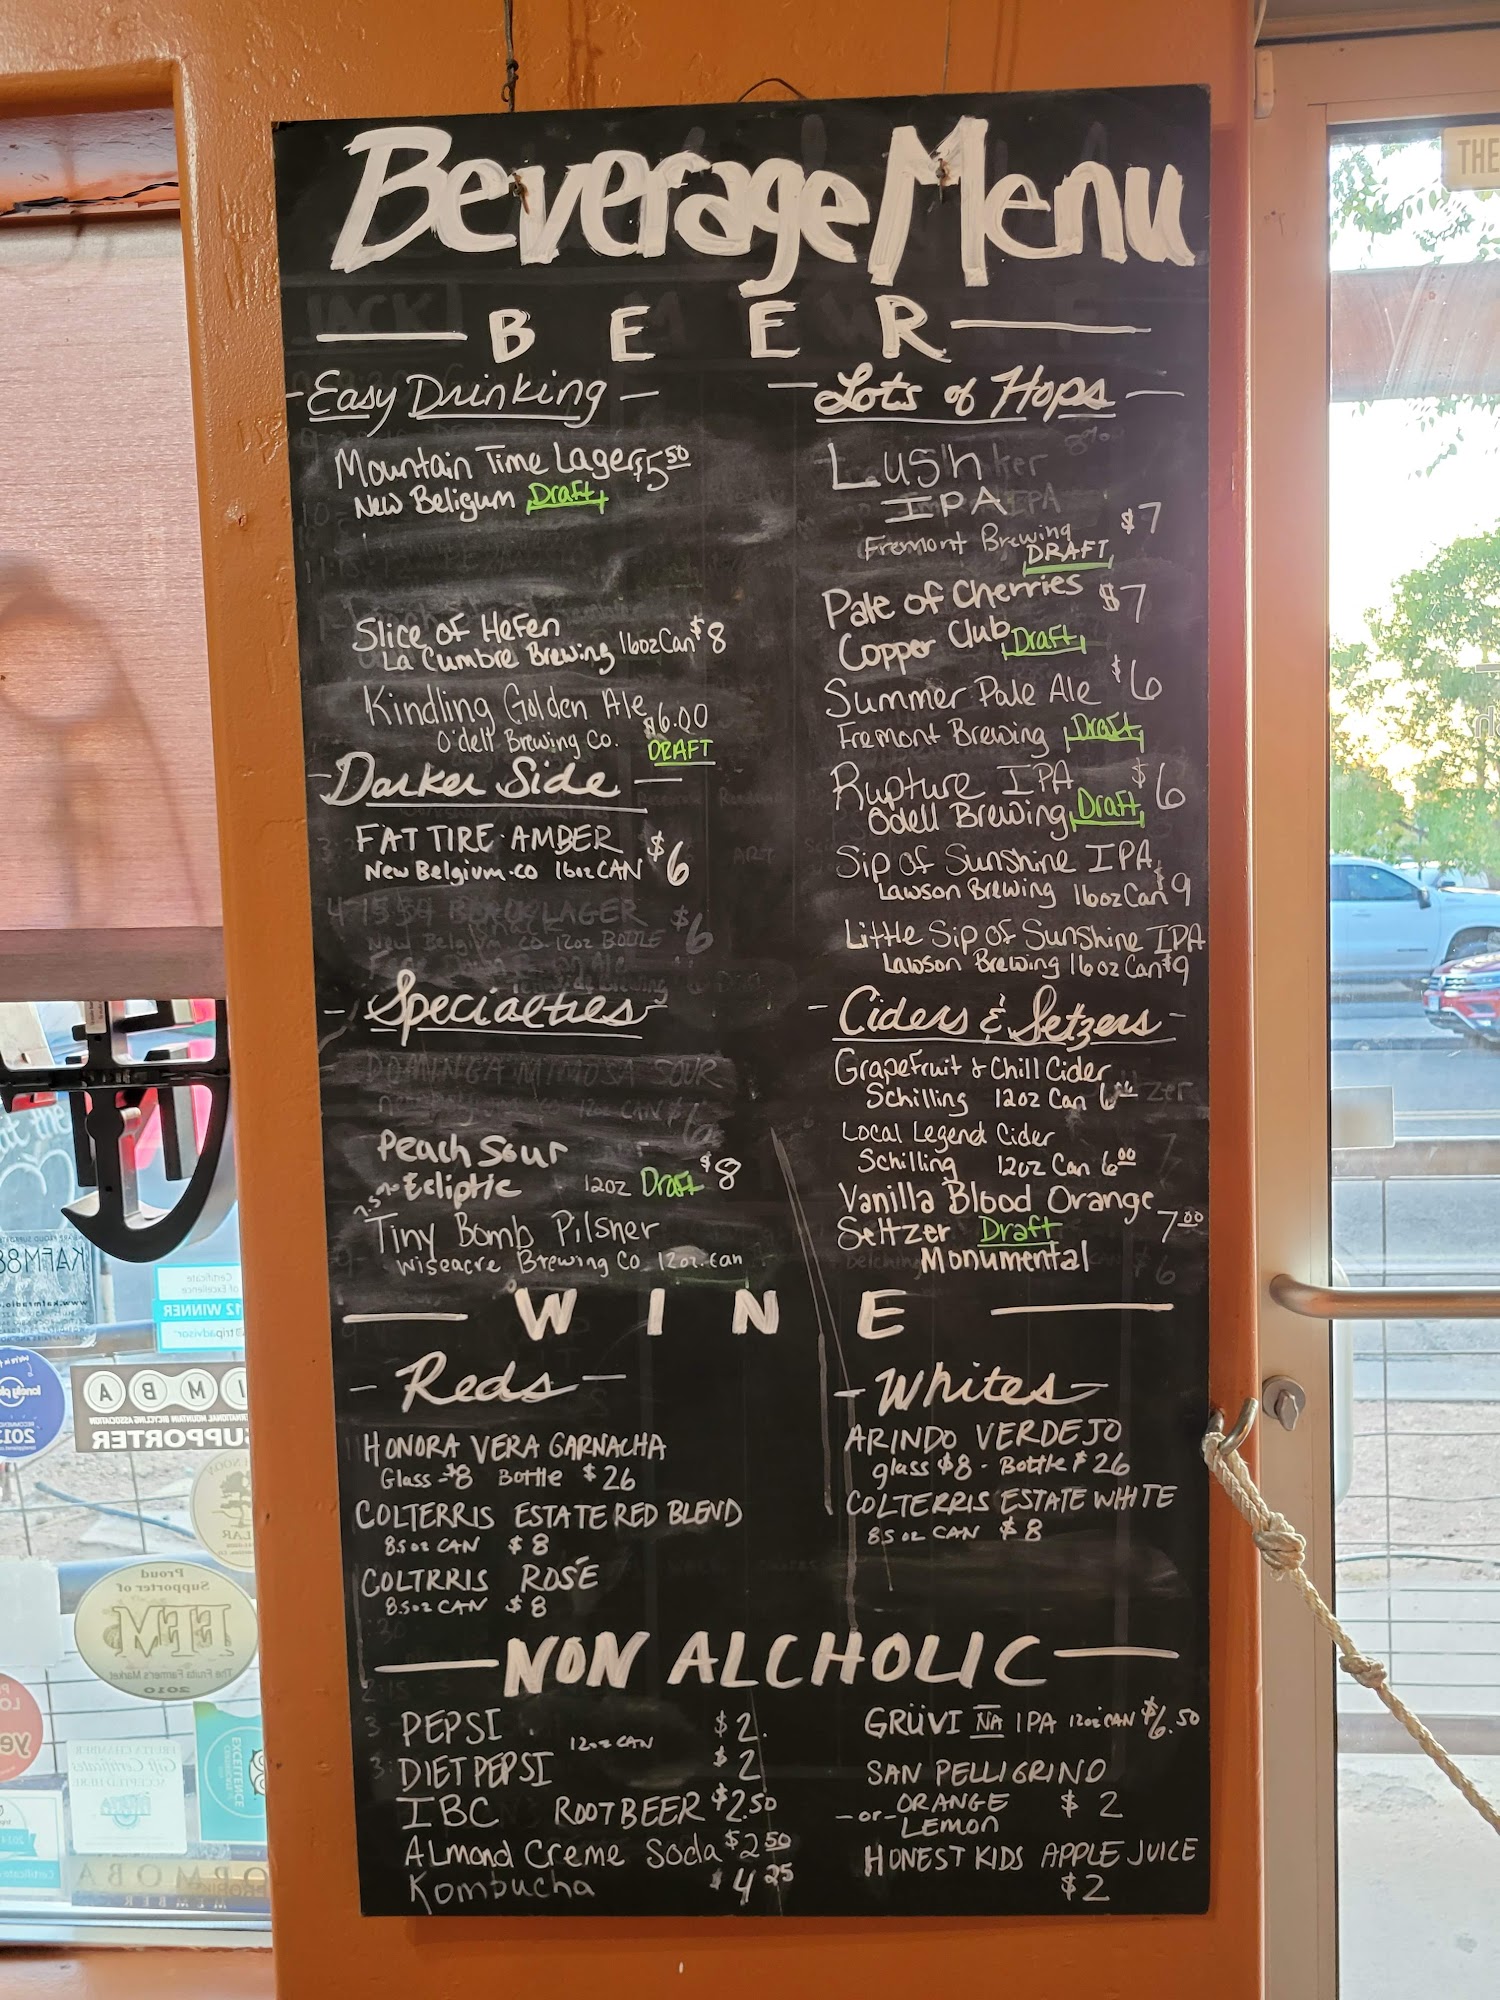 Beverage Menu
BEER
Easy Drinking
Mountain Time Lager $5.50
New Beligum Draft
Slice of Hefen
La Cumbre Brewing 16oz Can $8
Kindling Golden Ale
$6.00
O'dell Brewing Co. DRAFT
Darker Side
FAT TIRE AMBER $6
New Belgium.co 16oz CAN
BLACK LAGER $6
New Belgium co 12oz BOTTLE
Specialties
DOMINGA MIMOSA SOUR
12oz CAN $6
Peach Sour
Ecliptic 12oz Draft $8
Tiny Bomb Pilsner
Wiseacre Brewing Co 12oz. can
Lots of Hops
Lush
IPA $7
Fremont Brewing
DRAFT
Pale of Cherries $7
Copper Club Draft
Summer Pale Ale $6
Fremont Brewing Draft
Rupture IPA $6
Odell Brewing Draft
Sip of Sunshine IPA
Lawson Brewing 16oz Can $9
Little Sip of Sunshine IPA
Lawson Brewing 16oz Can $9
Ciders & Seltzers
Grapefruit & Chill Cider
Schilling 12oz Can 6
Local Legend Cider
Schilling 12oz Can 6.00
Vanilla Blood Orange
Seltzer Draft 7.00
Monumental
WINE
Reds
HONORA VERA GARNACHA
Glass - $8 Bottle $26
COLTERRIS ESTATE RED BLEND
8.5oz CAN $8
COLTRRIS ROSÉ
8.5oz CAN $8
Whites
ARINDO VERDEJO
glass $8 - Bottle $26
COLTERRIS ESTATE WHITE
8.5oz CAN $8
NON ALCHOLIC
PEPSI $2.
12oz CAN
DIET PEPSI $2
IBC ROOTBEER $2.50
Almond Creme Soda $2.50
Kombucha $4.25
GRÜVI NA IPA 12oz CAN $6.50
SAN PELLIGRINO
ORANGE $2
-or-
LEMON
HONEST KIDS APPLE JUICE
$2
THE
IMBA
INTERNATIONAL MOUNTAIN BICYCLING ASSOCIATION
SUPPORTER
Certificate
of Excellence
12 WINNER
tripadvisor
Proud
Supporter of
FFM
The Fruita Farmer's Market
2010